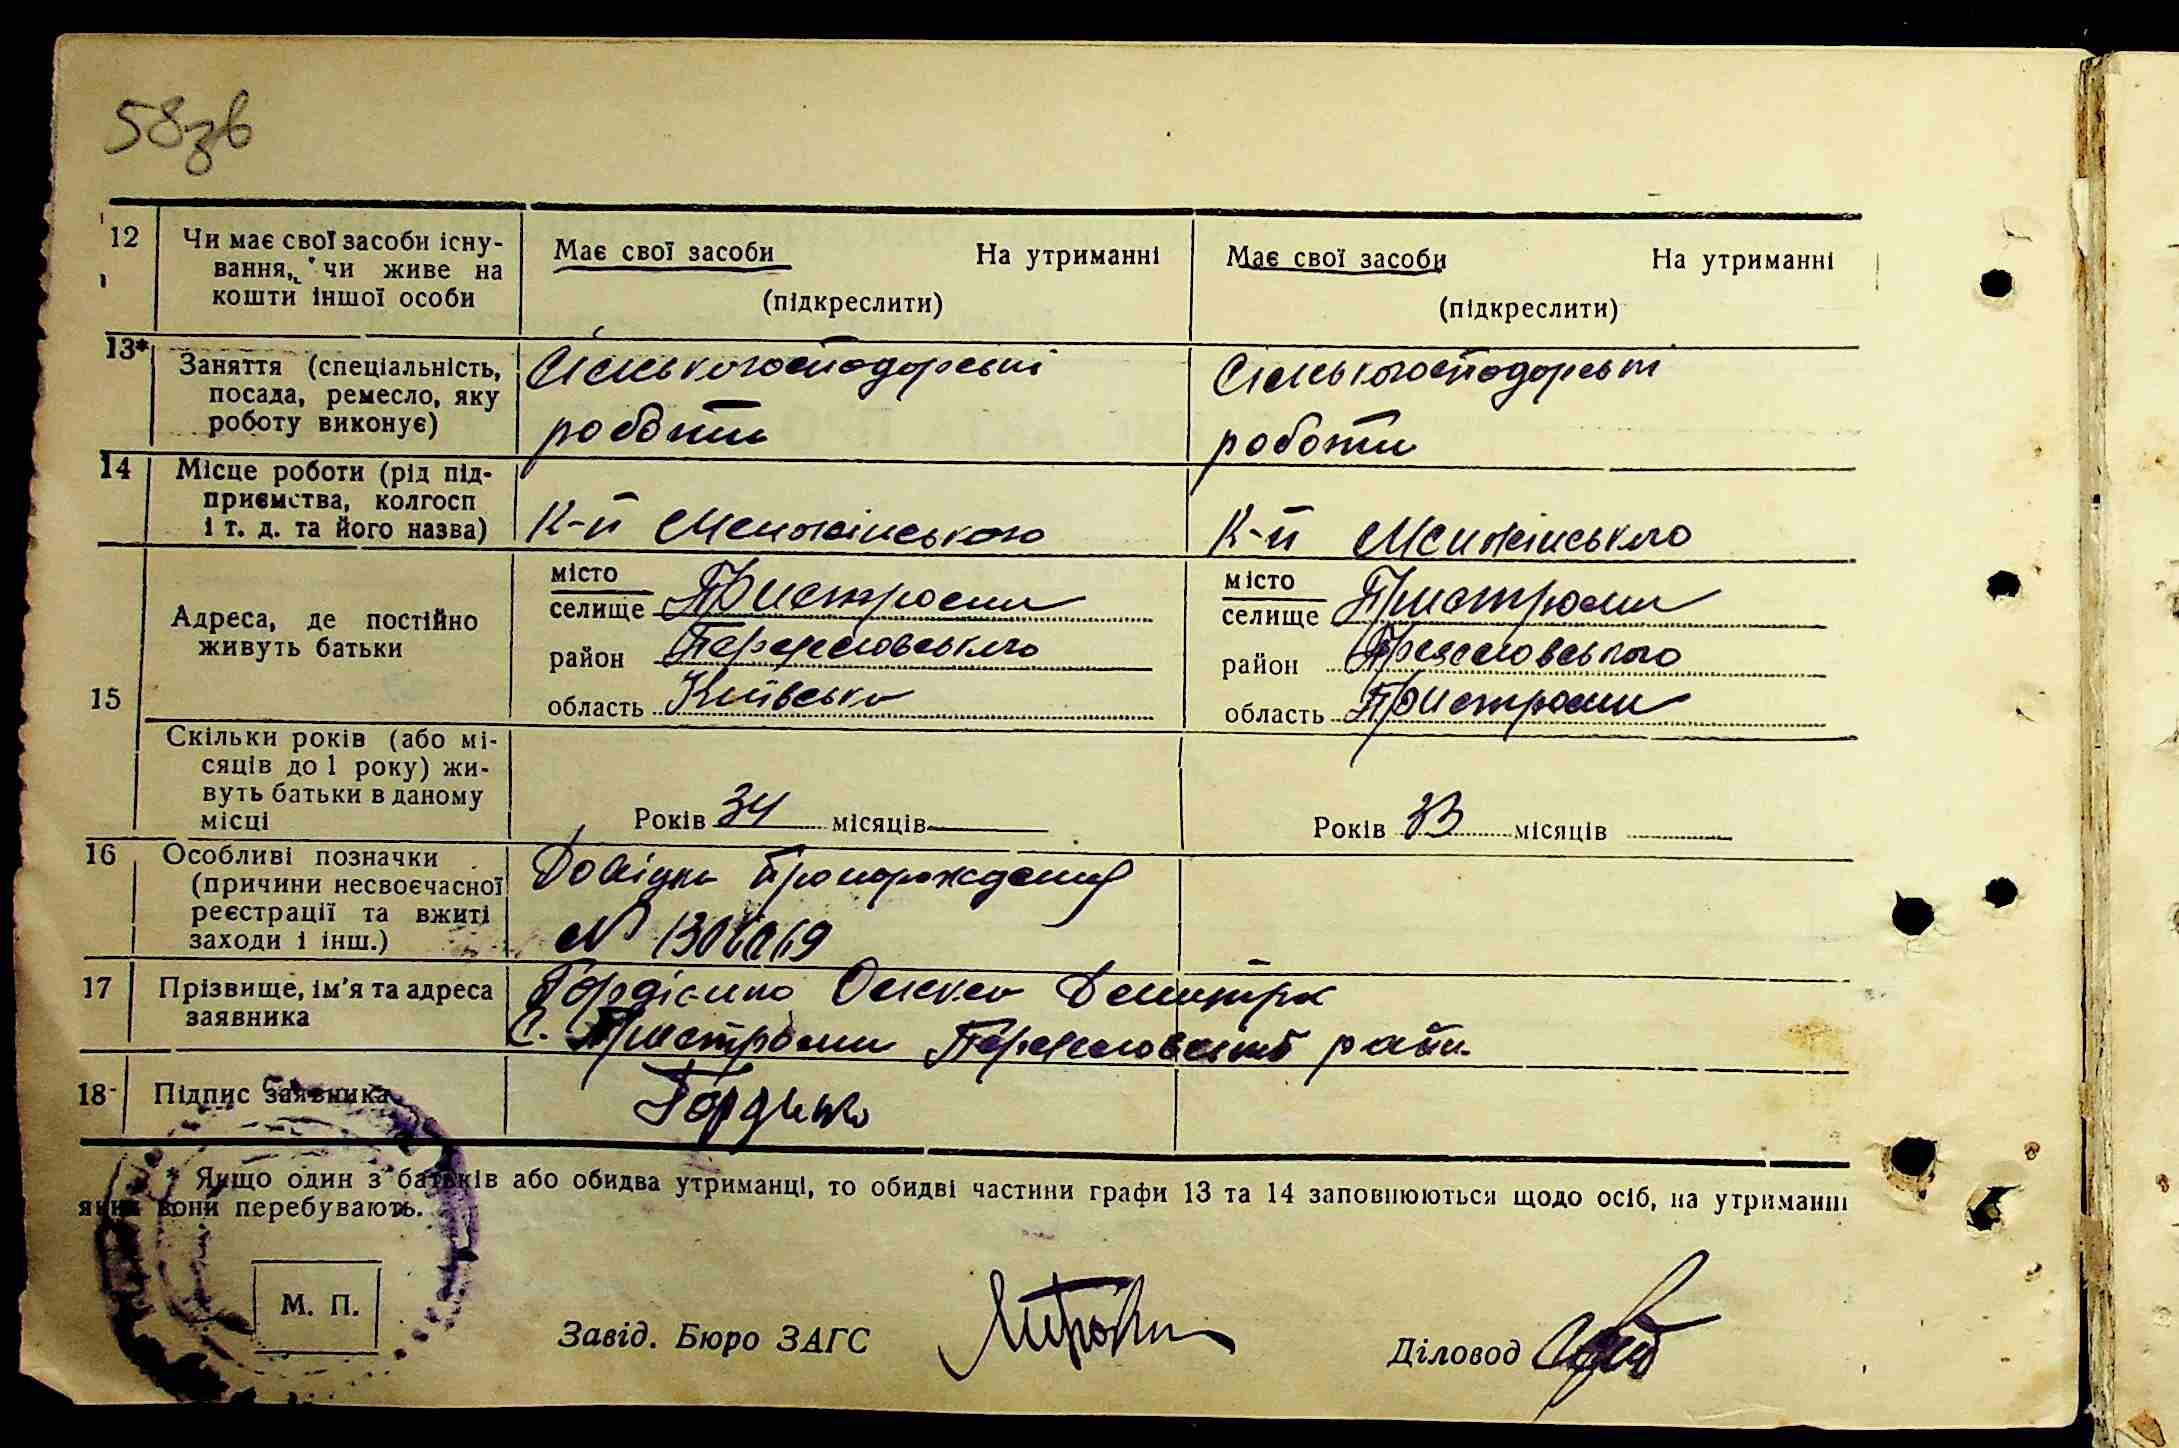 58зв
12 Чи має свої засоби існу-
вання, чи живе на
кошти іншої особи
Має свої засоби На утриманні
(підкреслити)
Має свої засоби На утриманні
(підкреслити)
13* Заняття (спеціальність,
посада, ремесло, яку
роботу виконує)
Сільськогосподорські
роботи
Сільськогосподорські
роботи
14 Місце роботи (рід під-
приємства, колгосп
і т. д. та його назва)
К-п Менжінського
К-п Менжінського
15 Адреса, де постійно
живуть батьки
місто
селище Пристроми
район Переяславського
область Київська
місто
селище Пристроми
район Преяславського
область Пристроми
Скільки років (або мі-
сяців до 1 року) жи-
вуть батьки в даному
місці
Років 34 місяців
Років 33 місяців
16 Особливі позначки
(причини несвоєчасної
реєстрації та вжиті
заходи і інш.)
Довідка
№
17 Прізвище, ім'я та адреса
заявника
Гордієнко Олекса Демитра
с. Пристроми Переяславський район
18 Підпис заявника
Гордієнко
* Якщо один з батьків або обидва утриманці, то обидві частини графи 13 та 14 заповнюються щодо осіб, на утриманні
яких вони перебувають.
М. П.
Завід. Бюро ЗАГС
Діловод